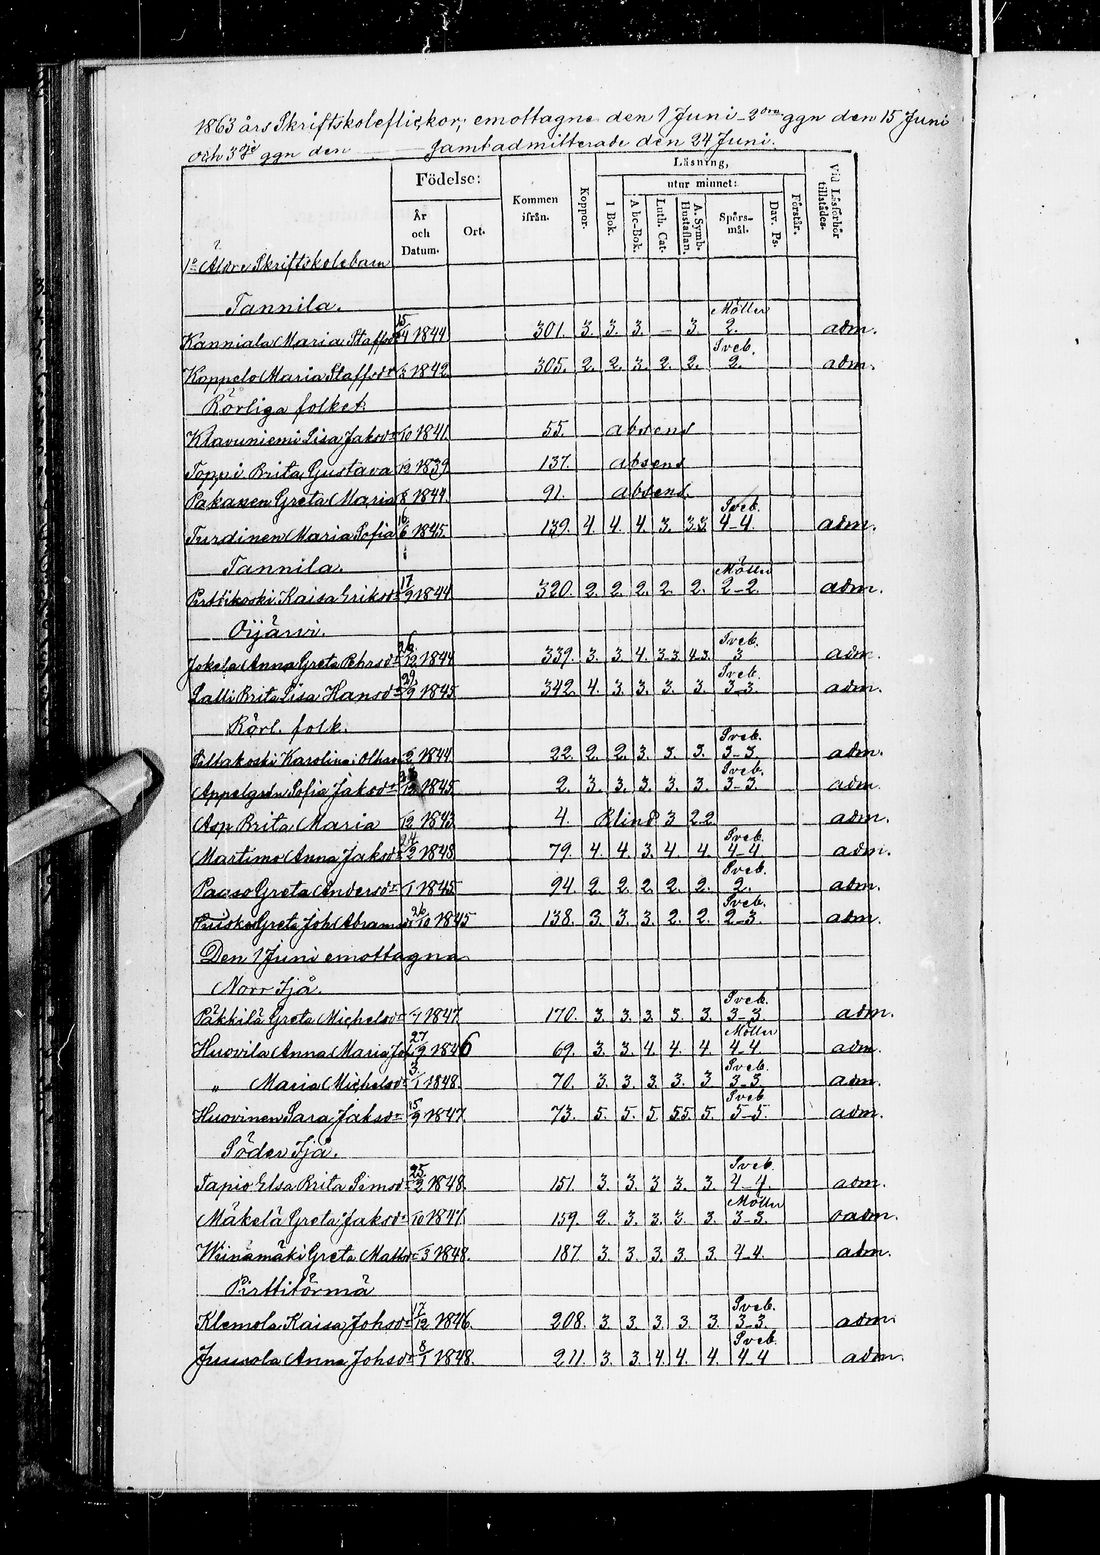 1863 års Skriftskoleflickor, emottagne den 1 Juni - 2dra ggn den 15 Juni
och 3je ggn den ——— samt admitterade den 24 Juni.
Födelse: Läsning,
utur minnet:
År och Datum. Ort. Kommen ifrån. Koppor. I Bok. Abc-Bok. Luth. Cat. A. Symb. Hustaflan. Spörs-mål. Dav. Ps. Förstår. Vid Läsförhör tillstädes.
1o Äldre Skriftskolebarn
Tannila.
Kanniala Maria Staffsdr 15/4 1844 301. 3. 3. 3. — 3. Möller 2. adm.
Koppelo Maria Staffsdr 1842 305. 2. 2. 3. 2. 2. Sveb. 2. adm.
Rörliga folket
Klavuniemi Lisa Jaksdr /10 1841 55. absens
Toppi Brita Gustava /12 1839 137. absens
Pakanen Greta Maria /8 1844 91. absens.
Turdinen Maria Sofia 1845. 139. 4. 4. 4. 3. 3.3. Sveb. 4-4. adm.
Tannila.
Kaisa Eriksdr 17/9 1844 320. 2. 2. 2. 2. 2. Möller 2-2. adm.
Oijärvi.
Jokela Anna Greta Pehrsdr 26/12 1844 339. 3. 3. 4. 3-3. 4-3. Sveb. 3 adm.
Salli Brita Lisa Hansdr 29/9 1845. 342. 4. 3. 3. 3. 3. Sveb. 3-3. adm.
Rörl. folk.
Karolina 1844 22. 2. 2. 3. 3. 3. Sveb. 3-3 adm.
Appelgren Sofia Jaksdr /12 1845 2. 3. 3. 3. 3. 3. Sveb. 3-3. adm.
Asp Brita Maria /12 1843 4. Blind 3 2.2 adm.
Martimo Anna Jaksdr 24/2 1848 79. 4. 4. 3. 4. 4. Sveb. 4-4 adm.
Paaso Greta Andersdr /1 1845 94. 2. 2. 2. 2. 2. Sveb. 2. adm.
Greta Joh. Abramsdr 26/10 1845 138. 3. 3. 3. 2. 2. Sveb. 2-3. adm.
Den 1 Juni emottagna
Norr Ijå.
Päkkilä Greta Michelsdr /1 1847. 170. 3. 3. 3. 3. 3. Sveb. 3-3 adm.
Huovila Anna Maria 27/9 1846 69. 3. 3. 4. 4. 4. Möller 4-4 adm.
" Maria Michelsdr 3/1 1848. 70. 3. 3. 3. 3. 3 Sveb. 3-3. adm.
Huovinen Sara Jaksdr 15/9 1847. 73. 5. 5. 5 5.5. 5. Sveb 5-5. adm.
Söder Ijå.
Tapio Elsa Brita Simsdr 25/2 1848. 151. 3. 3. 3 3. 3. Sveb. 4-4. adm.
Mäkelä Greta Jaksdr /10 1847. 159. 2. 3. 3. 3. 3. Möller 3-3. adm.
Weinämäki Greta Mattsdr /3 1848. 187. 3. 3. 3. 3. 3. 4-4. adm.
Pirttitörmä
Klemola Kaisa Johsdr 17/12 1846. 208. 3. 3. 3. 3. 3. Sveb. 3-3. adm.
Juusola Anna Johsdr 8/1 1848. 211. 3. 3. 4. 4. 4. Sveb. 4-4 adm.